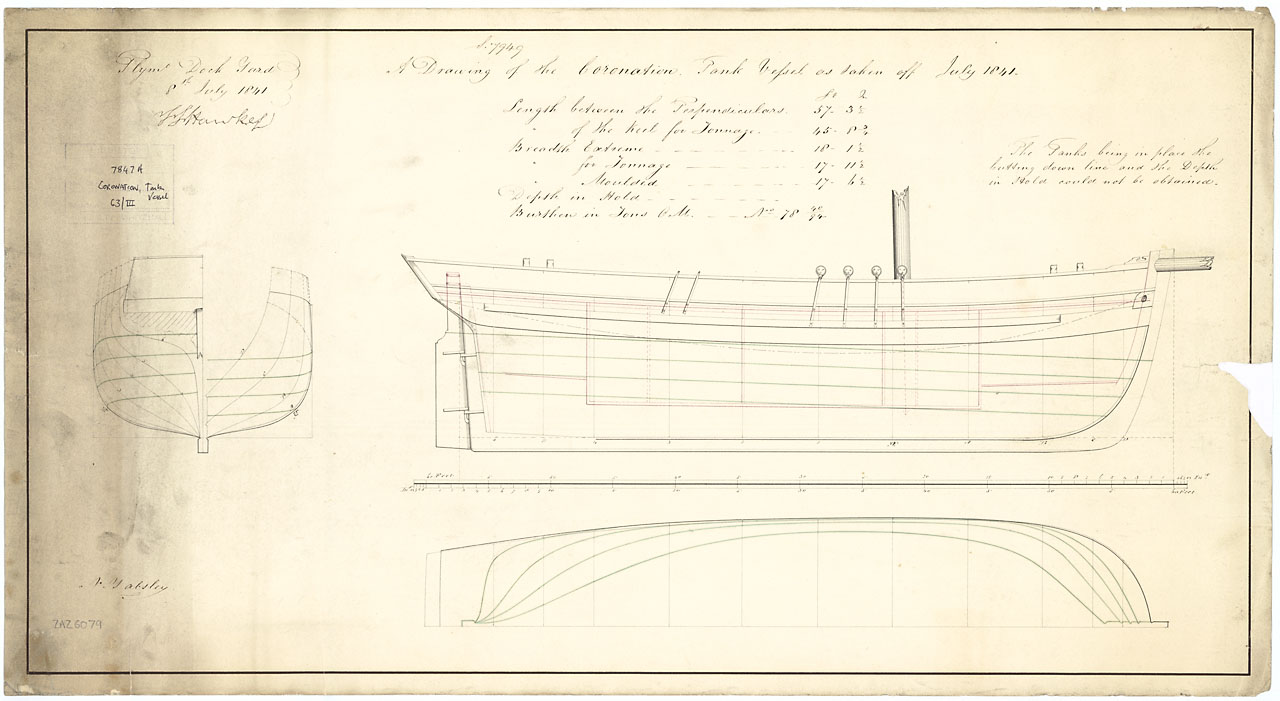 S. 7949
Plymo Dock Yard
8th July 1841
A Drawing of the Coronation. Tank Vessel as taken off July 1841.
Ft In
Length between the Perpendiculars. 57- 3½
" of the Keel for Tonnage. - 45- 8¾
Breadth Extreme - - - 18- 1½
" for Tonnage - - - 17- 11½
" Moulded - - - 17- 6½
Depth in Hold - - - - -
Burthen in Tons O.M. - - - No. 78 40/94
The Tanks being in place the
cutting down line and the Depth
in Hold could not be obtained.
7847A
CORONATION, Tank
Vessel
63/III
ZAZ6079